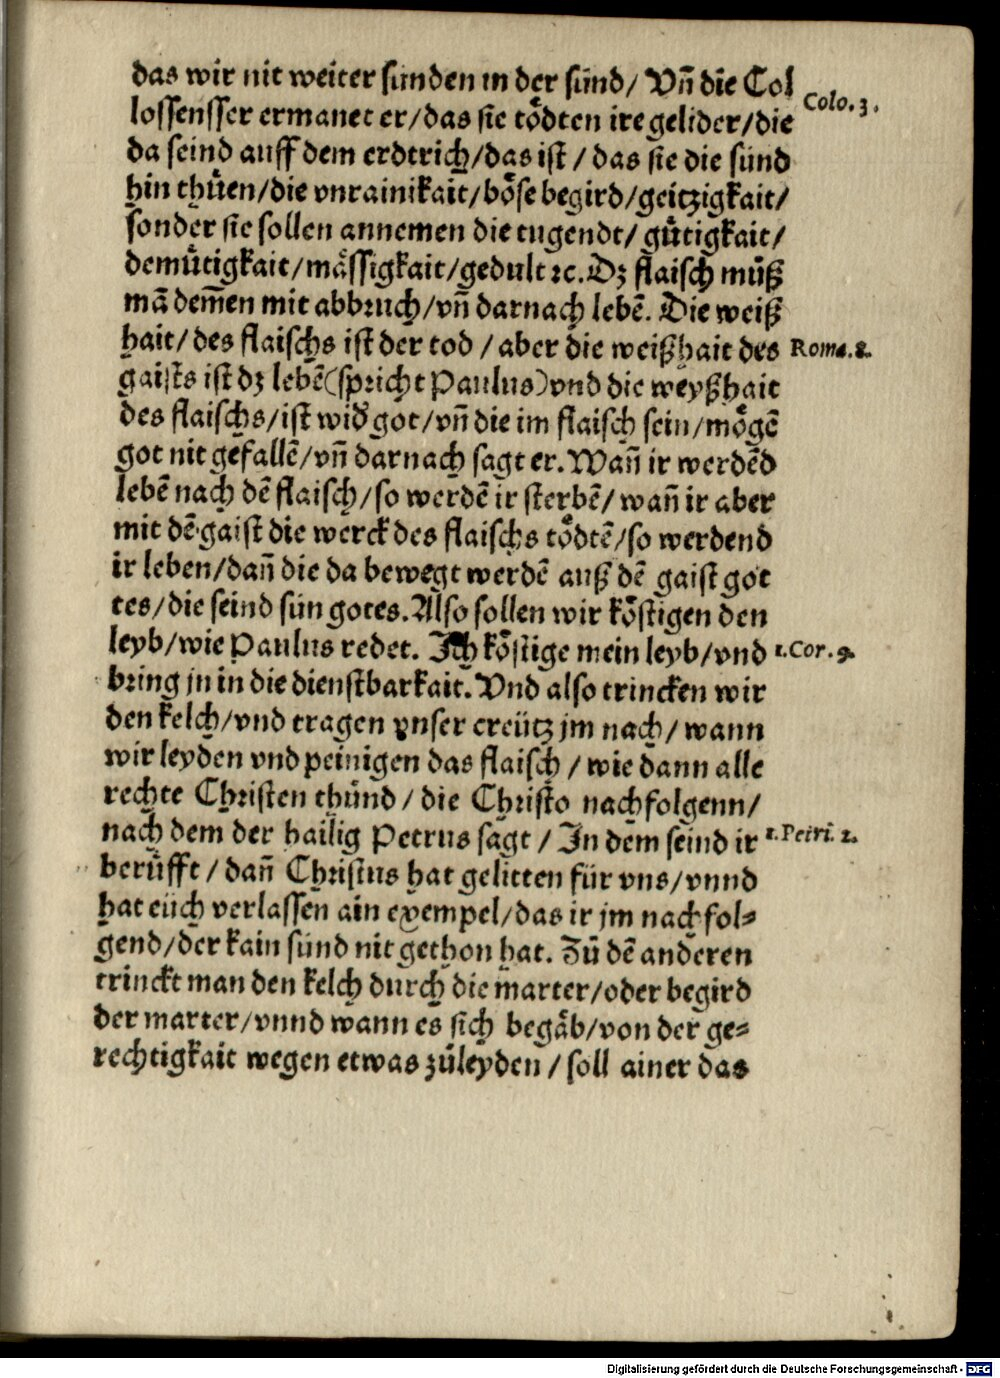 das wir nit weiter sünden in der sünd/ Vñ die Col
lossensser ermanet er/das sie toͤdten ire gelider/die
Colo.3.
da seind auff dem erdtrich/das ist / das sie die sünd
hin thuͤen/die vnrainikait/boͤse begird/geitzigkait/
sonder sie sollen annemen die tugendt/ guͤtigkait/
demuͤtigkait/maͤssigkait/gedult ꝛc. Dz flaisch muͤß
mã dem̃en mit abbruch/vñ darnach lebẽ. Die weiß
hait/des flaischs ist der tod / aber die weißhait des
Roma.8.
gaists ist dz lebẽ(spricht Paulus)vnd die weyßhait
des flaischs/ist wid̕ got/vñ die im flaisch sein/moͤgẽ
got nit gefallẽ/vñ darnach sagt er. Wañ ir werdẽd
lebẽ nach dẽ flaisch/so werdẽ ir sterbẽ/ wañ ir aber
mit dẽ gaist die werck des flaischs toͤdtẽ/so werdend
ir leben/dañ die da bewegt werdẽ auß dẽ gaist got
tes/die seind sün gotes. Also sollen wir koͤstigen den
leyb/wie Paulus redet. Ich koͤstige mein leyb/vnd
1.Cor.9.
bring jn in die dienstbarkait. Vnd also trincken wir
den kelch/vnd tragen vnser creütz jm nach/ wann
wir leyden vnd peinigen das flaisch / wie dann alle
rechte Christen thuͤnd / die Christo nachfolgenn/
nach dem der hailig Petrus sagt / In dem seind ir
1.Petri.2.
beruͤfft / dañ Christus hat gelitten für vns/vnnd
hat eüch verlassen ain exempel/das ir jm nachfol⸗
gend/der kain sünd nit gethon hat. Zuͦ dẽ anderen
trinckt man den kelch durch die marter/oder begird
der marter/vnnd wann es sich begaͤb/von der ge⸗
rechtigkait wegen etwas zuͦleyden / soll ainer das
Digitalisierung gefördert durch die Deutsche Forschungsgemeinschaft - DFG